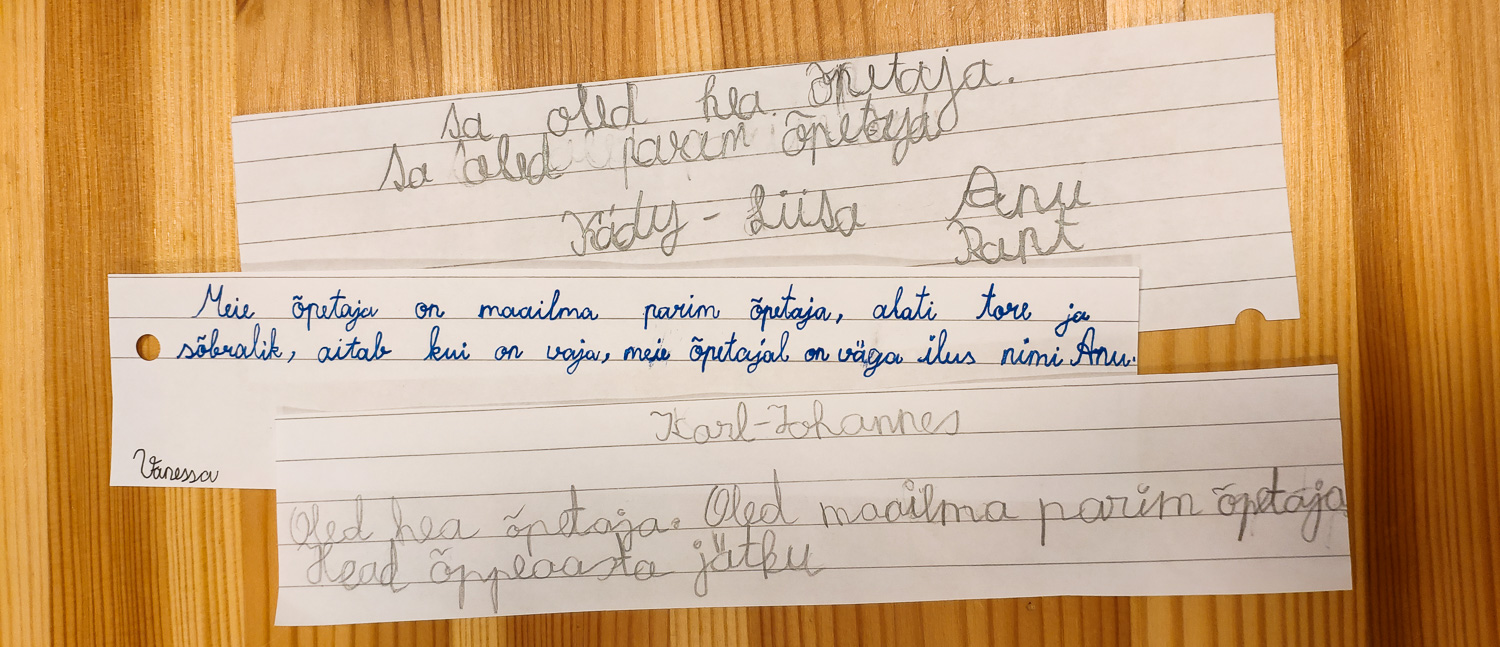 Sa oled hea õpetaja.
Sa oled parim õpetaja
Kädy-Liisa Anu
Rant
Meie õpetaja on maailma parim õpetaja, alati tore ja
sõbralik, aitab kui on vaja, meie õpetajal on väga ilus nimi Anu.
Vanessa
Karl-Johannes
Oled hea õpetaja. Oled maailma parim õpetaja
Head õppeaasta jätku